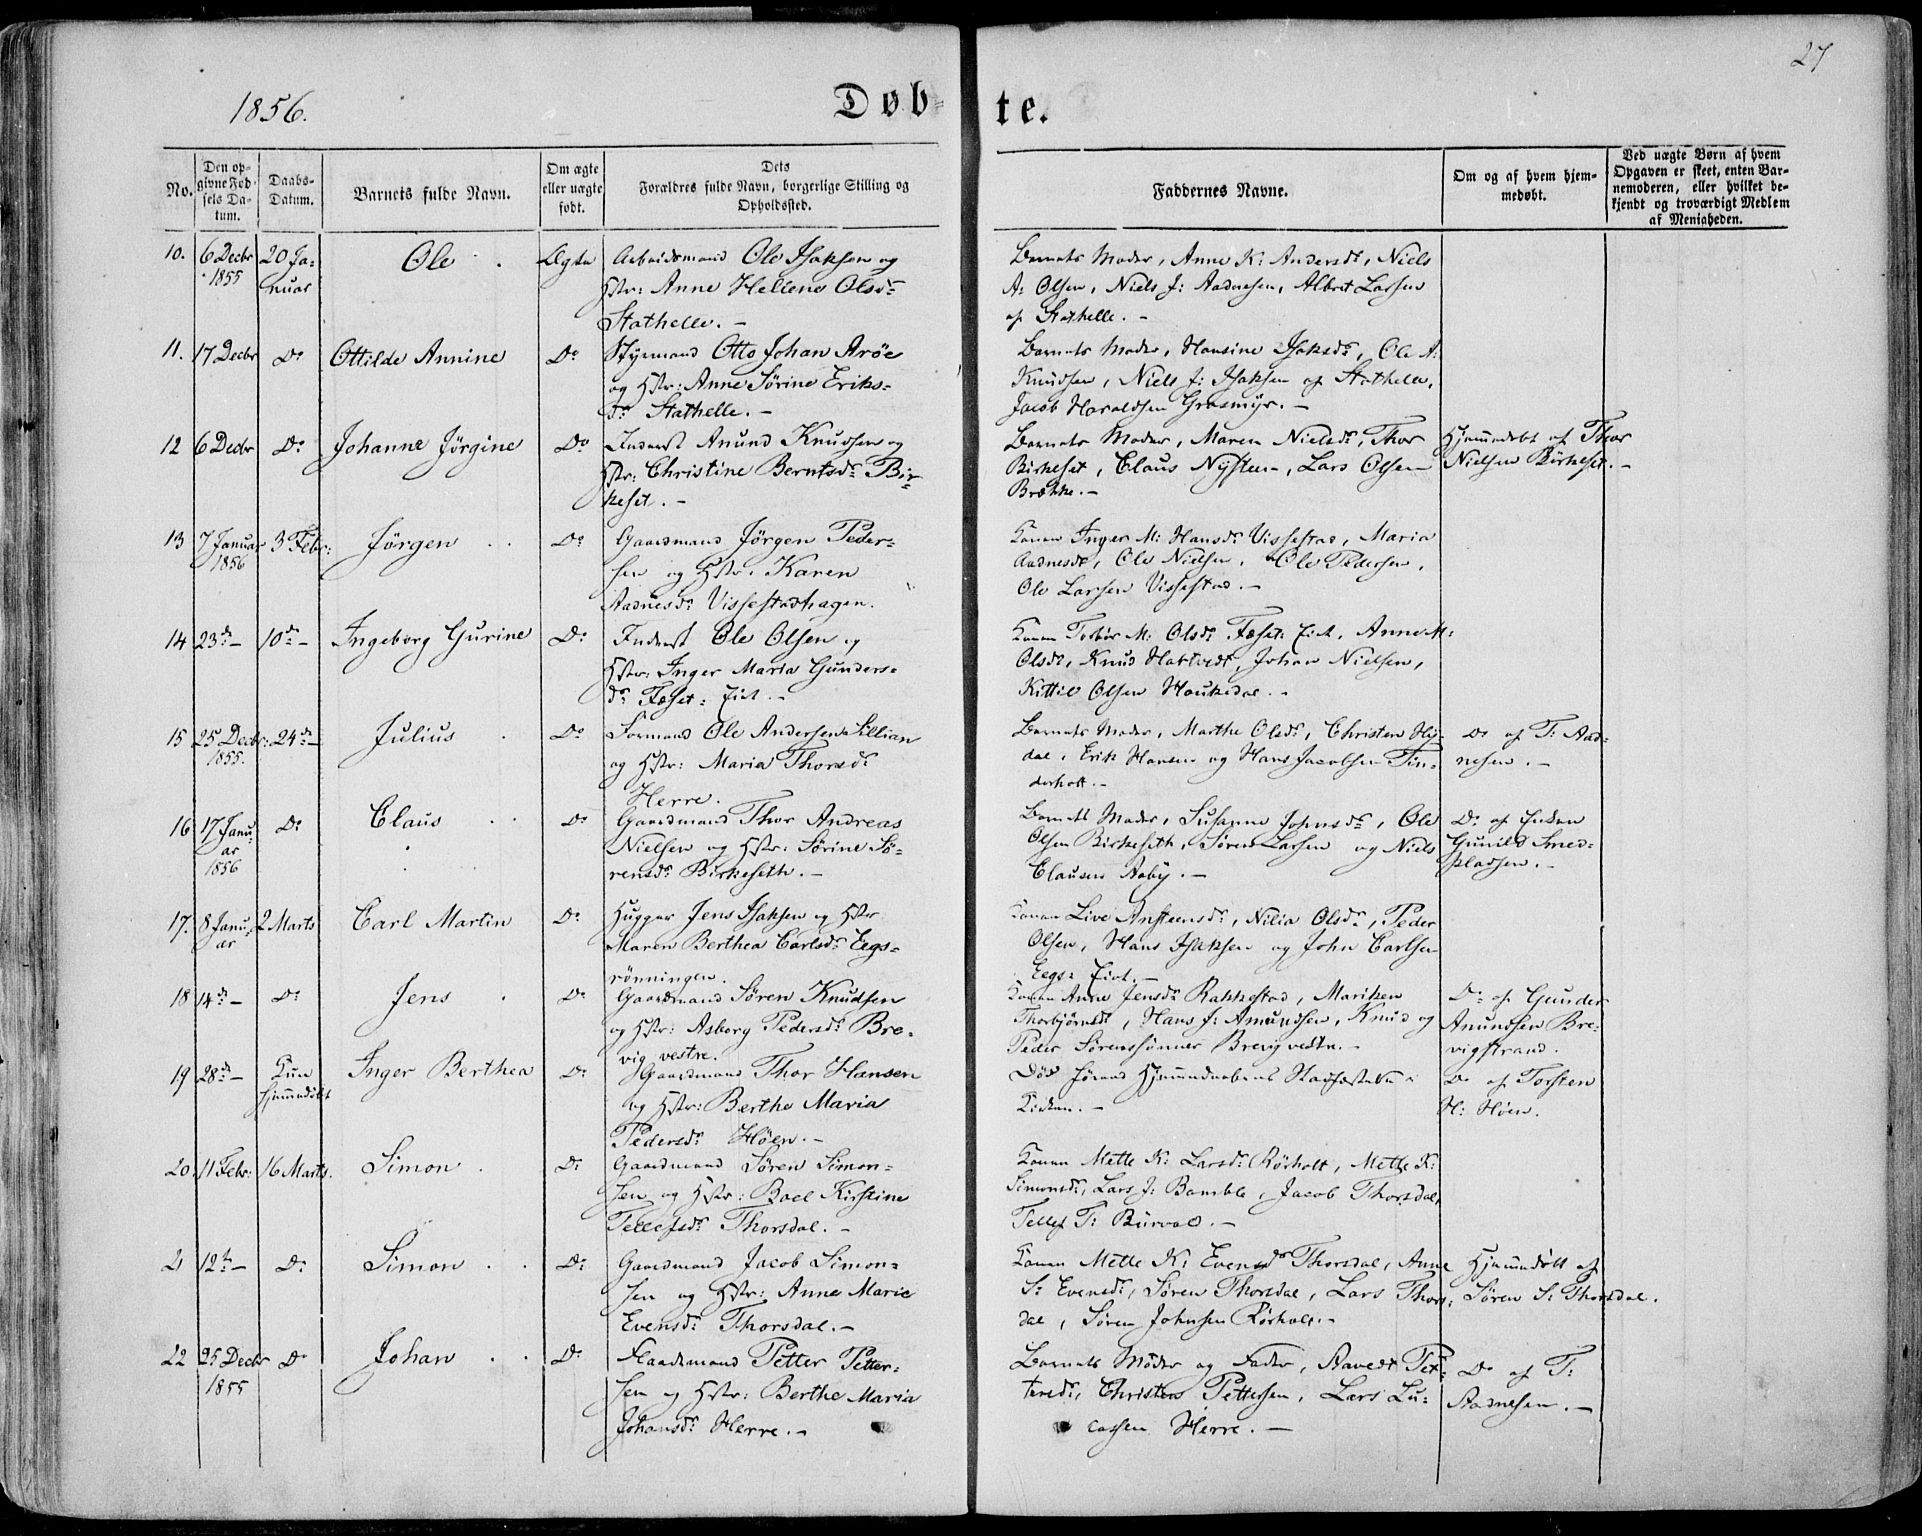 27
1856.
Døb-
te.
No.
Den op-
givne Fød-
sels Da-
tum.
Daabs-
Datum.
Barnets fulde Navn.
Om ægte
eller uægte
født.
Dets
Forældres fulde Navn, borgerlige Stilling og
Opholdssted.
Faddernes Navne.
Om og af hvem hjem-
medøbt.
Ved uægte Børn af hvem
Opgaven er skeet, enten Bar-
nemoderen, eller hvilket be-
kjendt og troværdigt Medlem
af Menigheden.
10. 6 Decbr 20 Ja- Ole Ægte Arbeidsmand Ole Isaksen og
1855 nuar Hstr: Anne Hellene Olsdr
Stathelle. -
Barnets Moder, Anne K: Andersdr, Niels
A: Olsen, Niels J: Aadnesen, Albret Larsen
af Stathelle. -
11. 17 Decbr Do Ottilde Annine Do Styrmand Otto Johan Aröe
og Hstr: Anne Sörine Eriks-
dr Stathelle. -
Barnets Moder, Hansine Isaksdr, Ole A:
Knudsen, Niels J: Isaksen af Stathelle,
Jacob Haraldsen Grasmyr. -
12 6 Decbr Do Johanne Jörgine Do Inderst Anund Knudsen og
Hstr: Christine Berntsdr Bir-
keset. -
Barnets Moder, Maren Nielsdr, Thor
Birkeset, Claus Nysteen, Lars Olsen
Brække. -
Hjemmedøbt af Thor
Nielsen Birkeset. -
13 7 Januar 3 Febr: Jörgen Do Gaardmand Jörgen Peder-
1856 sen og Hstr: Karen
Aadnesdr Vissestadhagen.
Konen Inger M: Hansdr Vissestad, Maria
Aadnesdr, Ole Nielsen, Ole Pedersen,
Ole Larsen Vissestad. -
14 23de - 10de - Ingeborg Gurine Do Inderst Ole Olsen og
Hstr: Inger Maria Gunders-
dr Fæset: Eiet. -
Konen Torbör M: Olsdr Fæset: Eiet, Anne M:
Olsdr, Knud Hartvedt, Johan Nielsen,
Kittil Olsen Haukedal. -
15 25 Decbr: 24de - Julius Do Formand Ole Andersen Sillian
1855. og Hstr: Maria Thorsdr
Herre.
Barnets Moder, Marthe Olsdr, Christen Hy-
dal, Erik Hansen og Hans Jacobsen Tin-
derholt. -
Do af T: Aad-
nesen. -
16 17 Janu- Do Claus Do Gaardmand Thor Andreas
ar Nielsen og Hstr: Sörine Sö-
1856 rensdr Birkeseth. -
Barnets Moder, Susanne Johnsdr, Ole
Olsen Birkeseth, Sören Larsen og Niels
Clausen Aaby. -
Do af Enken
Gunild Smed-
pladsen. -
17. 8 Janu- 2 Marts Carl Martin Do Hugger Jens Isaksen og Hstr
ar Maren Berthea Carlsdr Eegs-
rönningen.
Konen Live Anstensdr, Nilia Olsdr, Peder
Olsen, Hans Isaksen og John Carlsen
Eegs: Eiet. -
18 14de - Do Jens Do Gaardmand Sören Knudsen
og Hstr: Asborg Pedersdr Bre-
vig vestre.
Konen Anne Jensdr Rakkestad, Mariken
Thorbjörnsdr, Hans J: Amundsen, Knud og
Peder Sörenssönner Brevig vestre. -
Do af Gunder
Anundsen Bre-
vigstrand.
19 28de - Kun Inger Berthea Do Gaardmand Thor Hansen
hjemmedöbt og Hstr: Berthe Maria
Pedersdr Höen. -
Död förend Hjemmedaabens Stadfæstelse i
Kirken. -
Do af Torsten
H: Höen.
20. 11 Febr: 16 Marts. Simon Do Gaardmand Sören Simon-
sen og Hstr: Boel Kirstine
Tellefsdr Thorsdal. -
Konen Mette K: Larsdr Rörholt, Mette K:
Simonsdr, Lars J: Bamble, Jacob Thorsdal,
Tellef T: Burvald. -
21 12te - Do Simon Do Gaardmand Jacob Simon-
sen og Hstr: Anne Marie
Evensdr Thorsdal. -
Konen Mette K: Evensdr Thorsdal, Anne
S: Evensdr, Sören Thorsdal, Lars Thors-
dal, Sören Johnsen Rörholt. -
Hjemmedöbt af
Sören S: Thorsdal.
22 25 Decbr Do Johan Do Pladsmand Petter Petter-
1855 sen og Hstr: Berthe Maria
Johansdr Herre. -
Barnets Moder og Fader, Aavedt Pet-
tersdr, Christen Pettersen, Lars Lu-
cassen Herre. -
Do af T:
Aadnesen. -